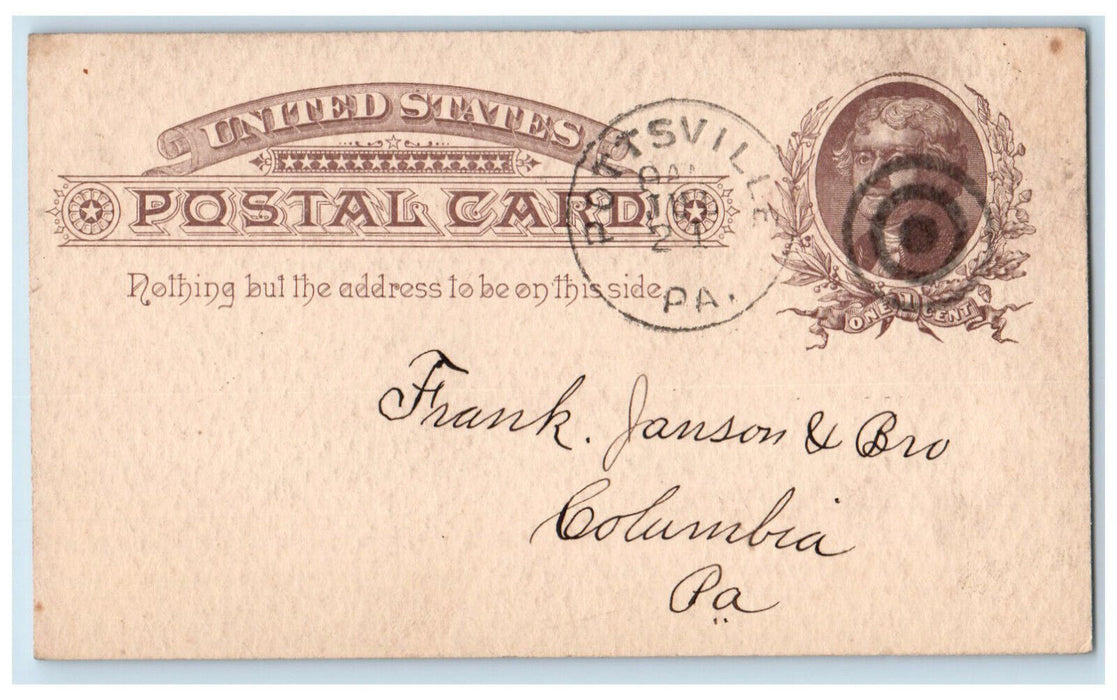 UNITED STATES
POSTAL CARD
Nothing but the address to be on this side.
POTTSVILLE
21
PA.
ONE 1 CENT
Frank. Janson & Bro
Columbia
Pa